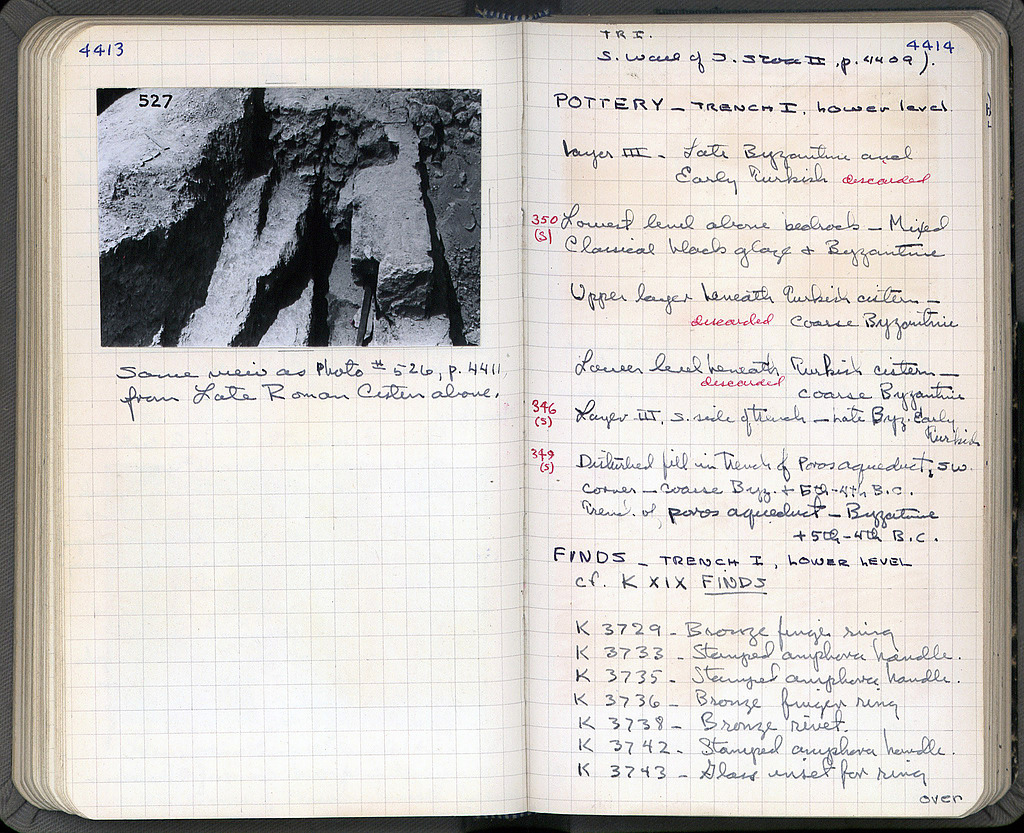 4413
527
Same view as Photo # 526, p. 4411,
from Late Roman Cistern above.
TR I.
4414
S. wall of S. Stoa II, p. 4409).
POTTERY – TRENCH I, Lower level
Layer III – Late Byzantine and
Early Turkish discarded
350 Lowest level above bedrock – Mixed
(S) Classical black glaze + Byzantine
Upper layer beneath Turkish cistern –
discarded coarse Byzantine
Lower level beneath Turkish cistern –
discarded
coarse Byzantine
346 Layer III, S. side of trench – Late Byz. Early
(S) Turkish
349 Disturbed fill in trench of Poros aqueduct, SW.
(S) corner – coarse Byz. + 5th-4th B.C.
Trench of poros aqueduct – Byzantine
+ 5th-4th B.C.
FINDS – TRENCH I, LOWER LEVEL
cf. K XIX FINDS
K 3729 – Bronze finger ring
K 3733 – Stamped amphora handle.
K 3735 – Stamped amphora handle.
K 3736 – Bronze finger ring
K 3738 – Bronze rivet.
K 3742 – Stamped amphora handle.
K 3743 – Glass inset for ring
over